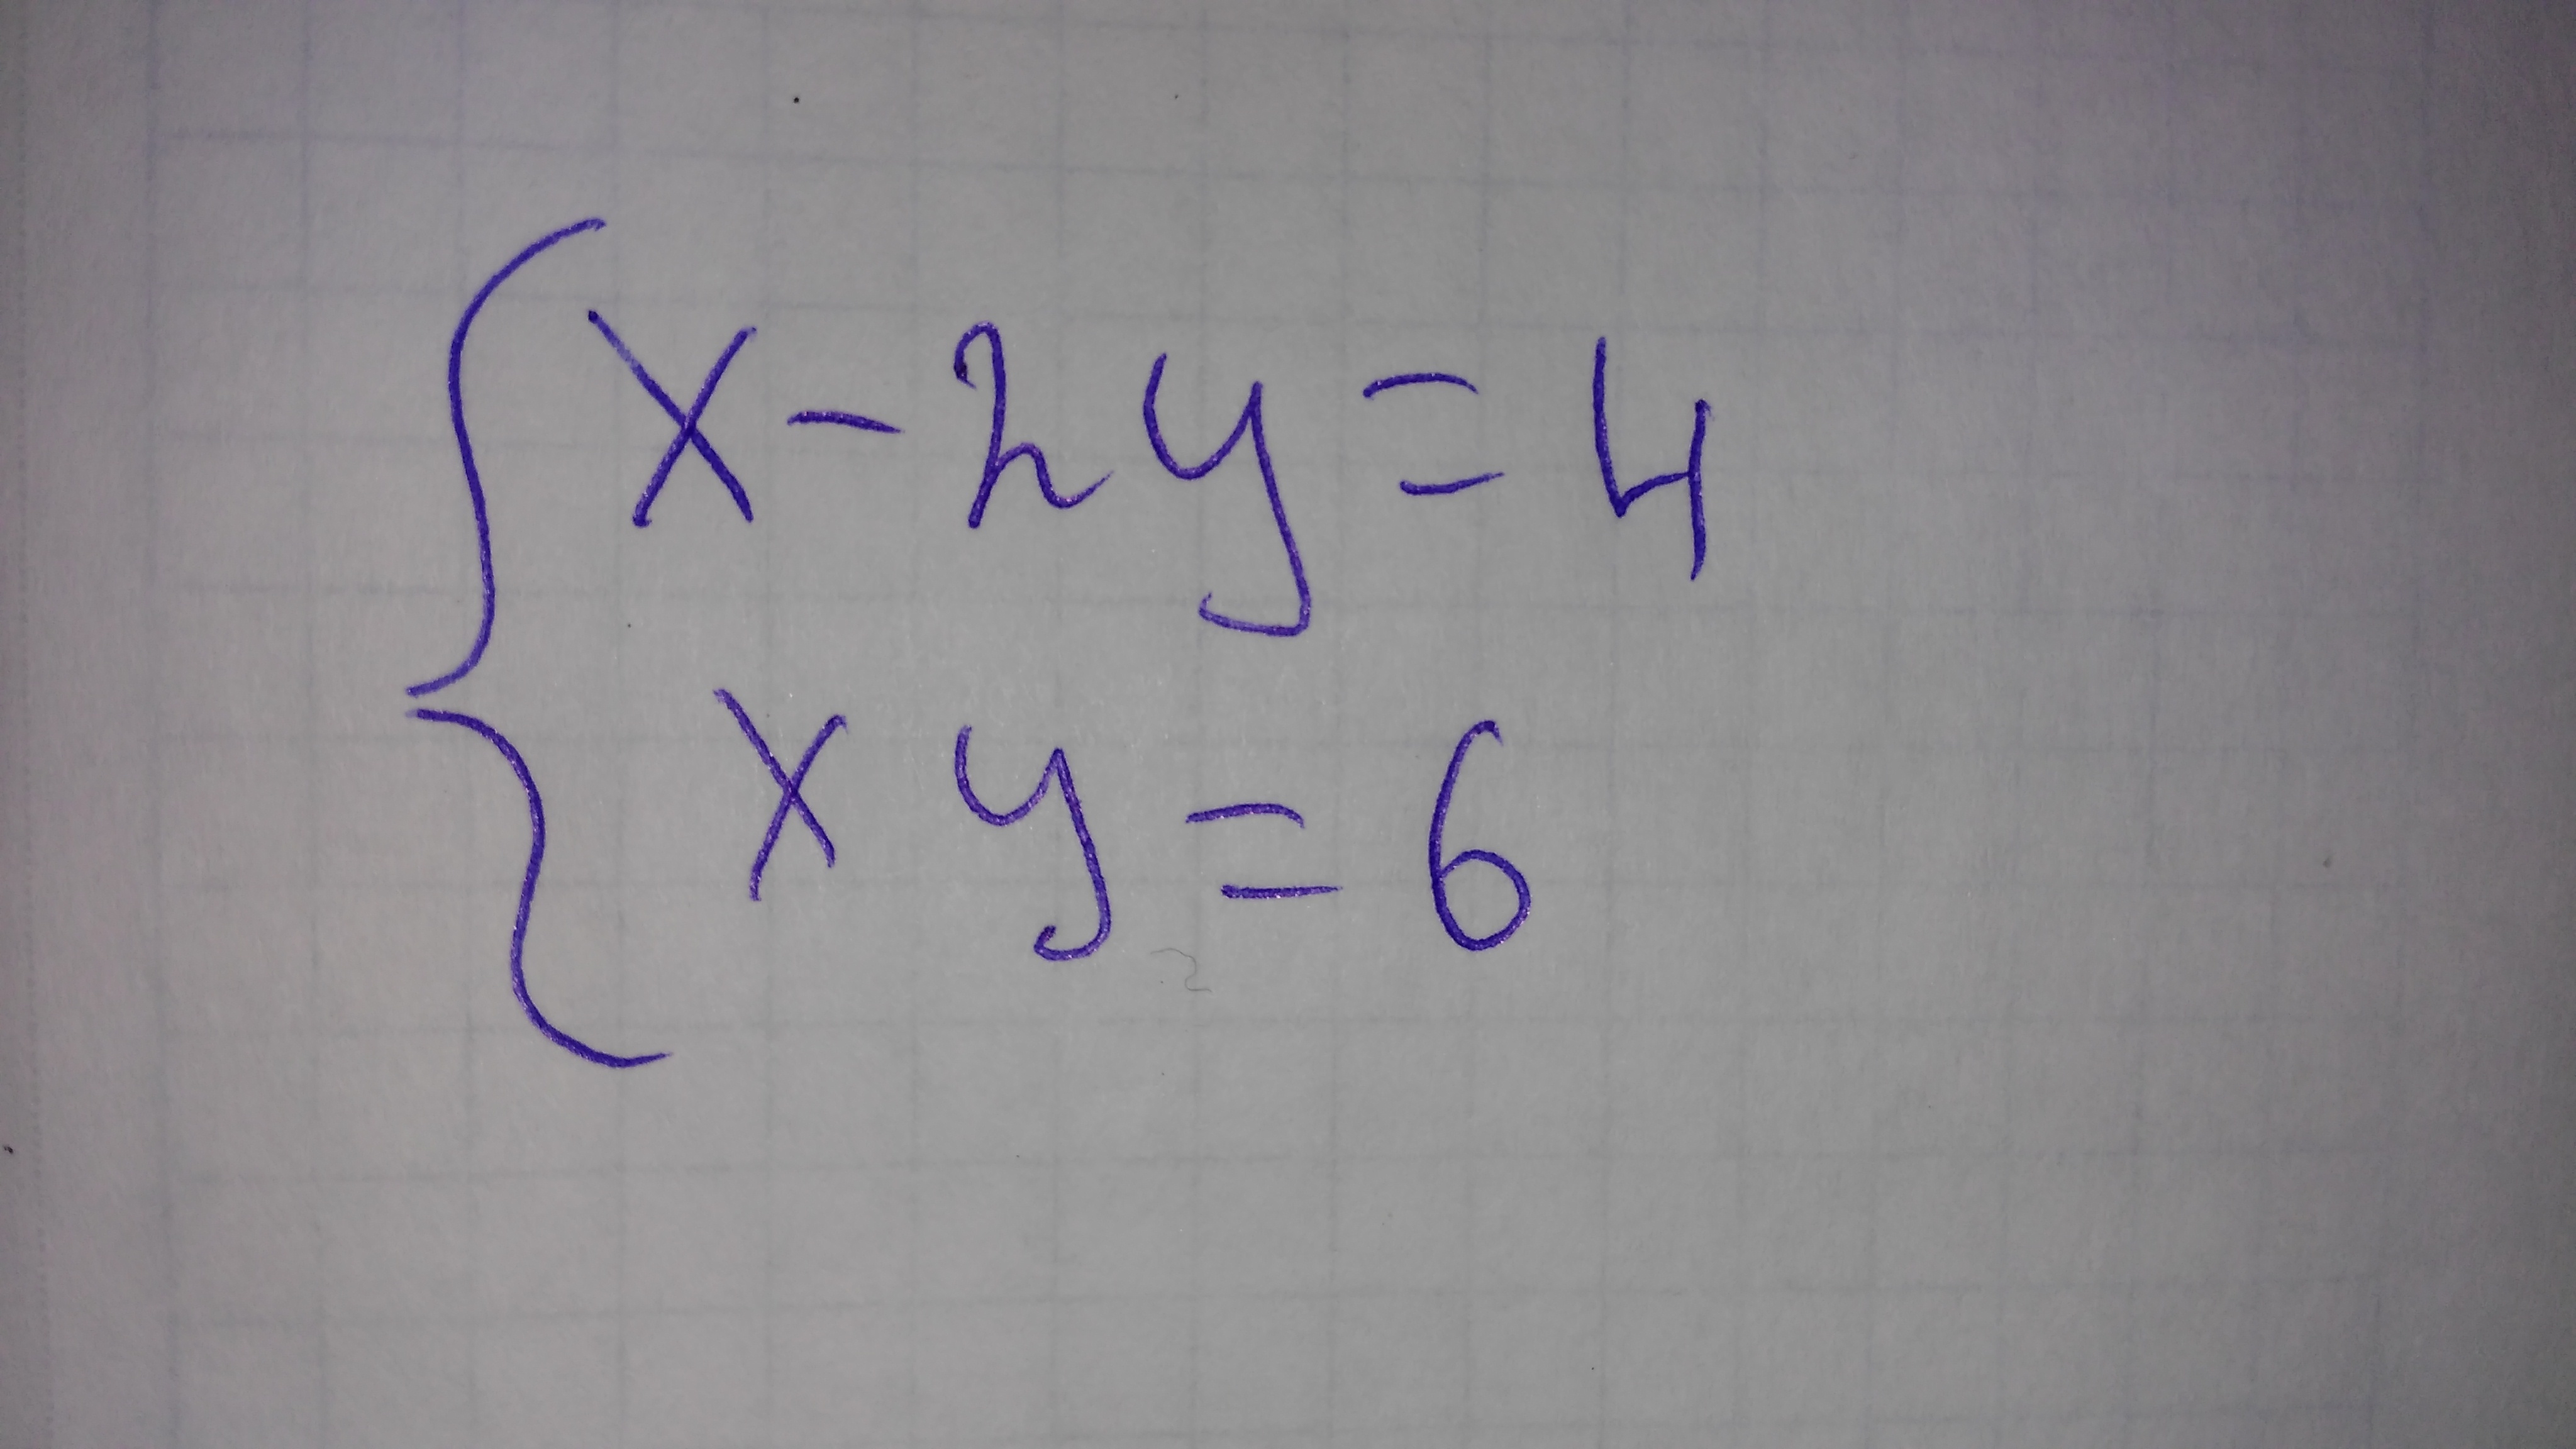 x - 2y = 4
xy = 6